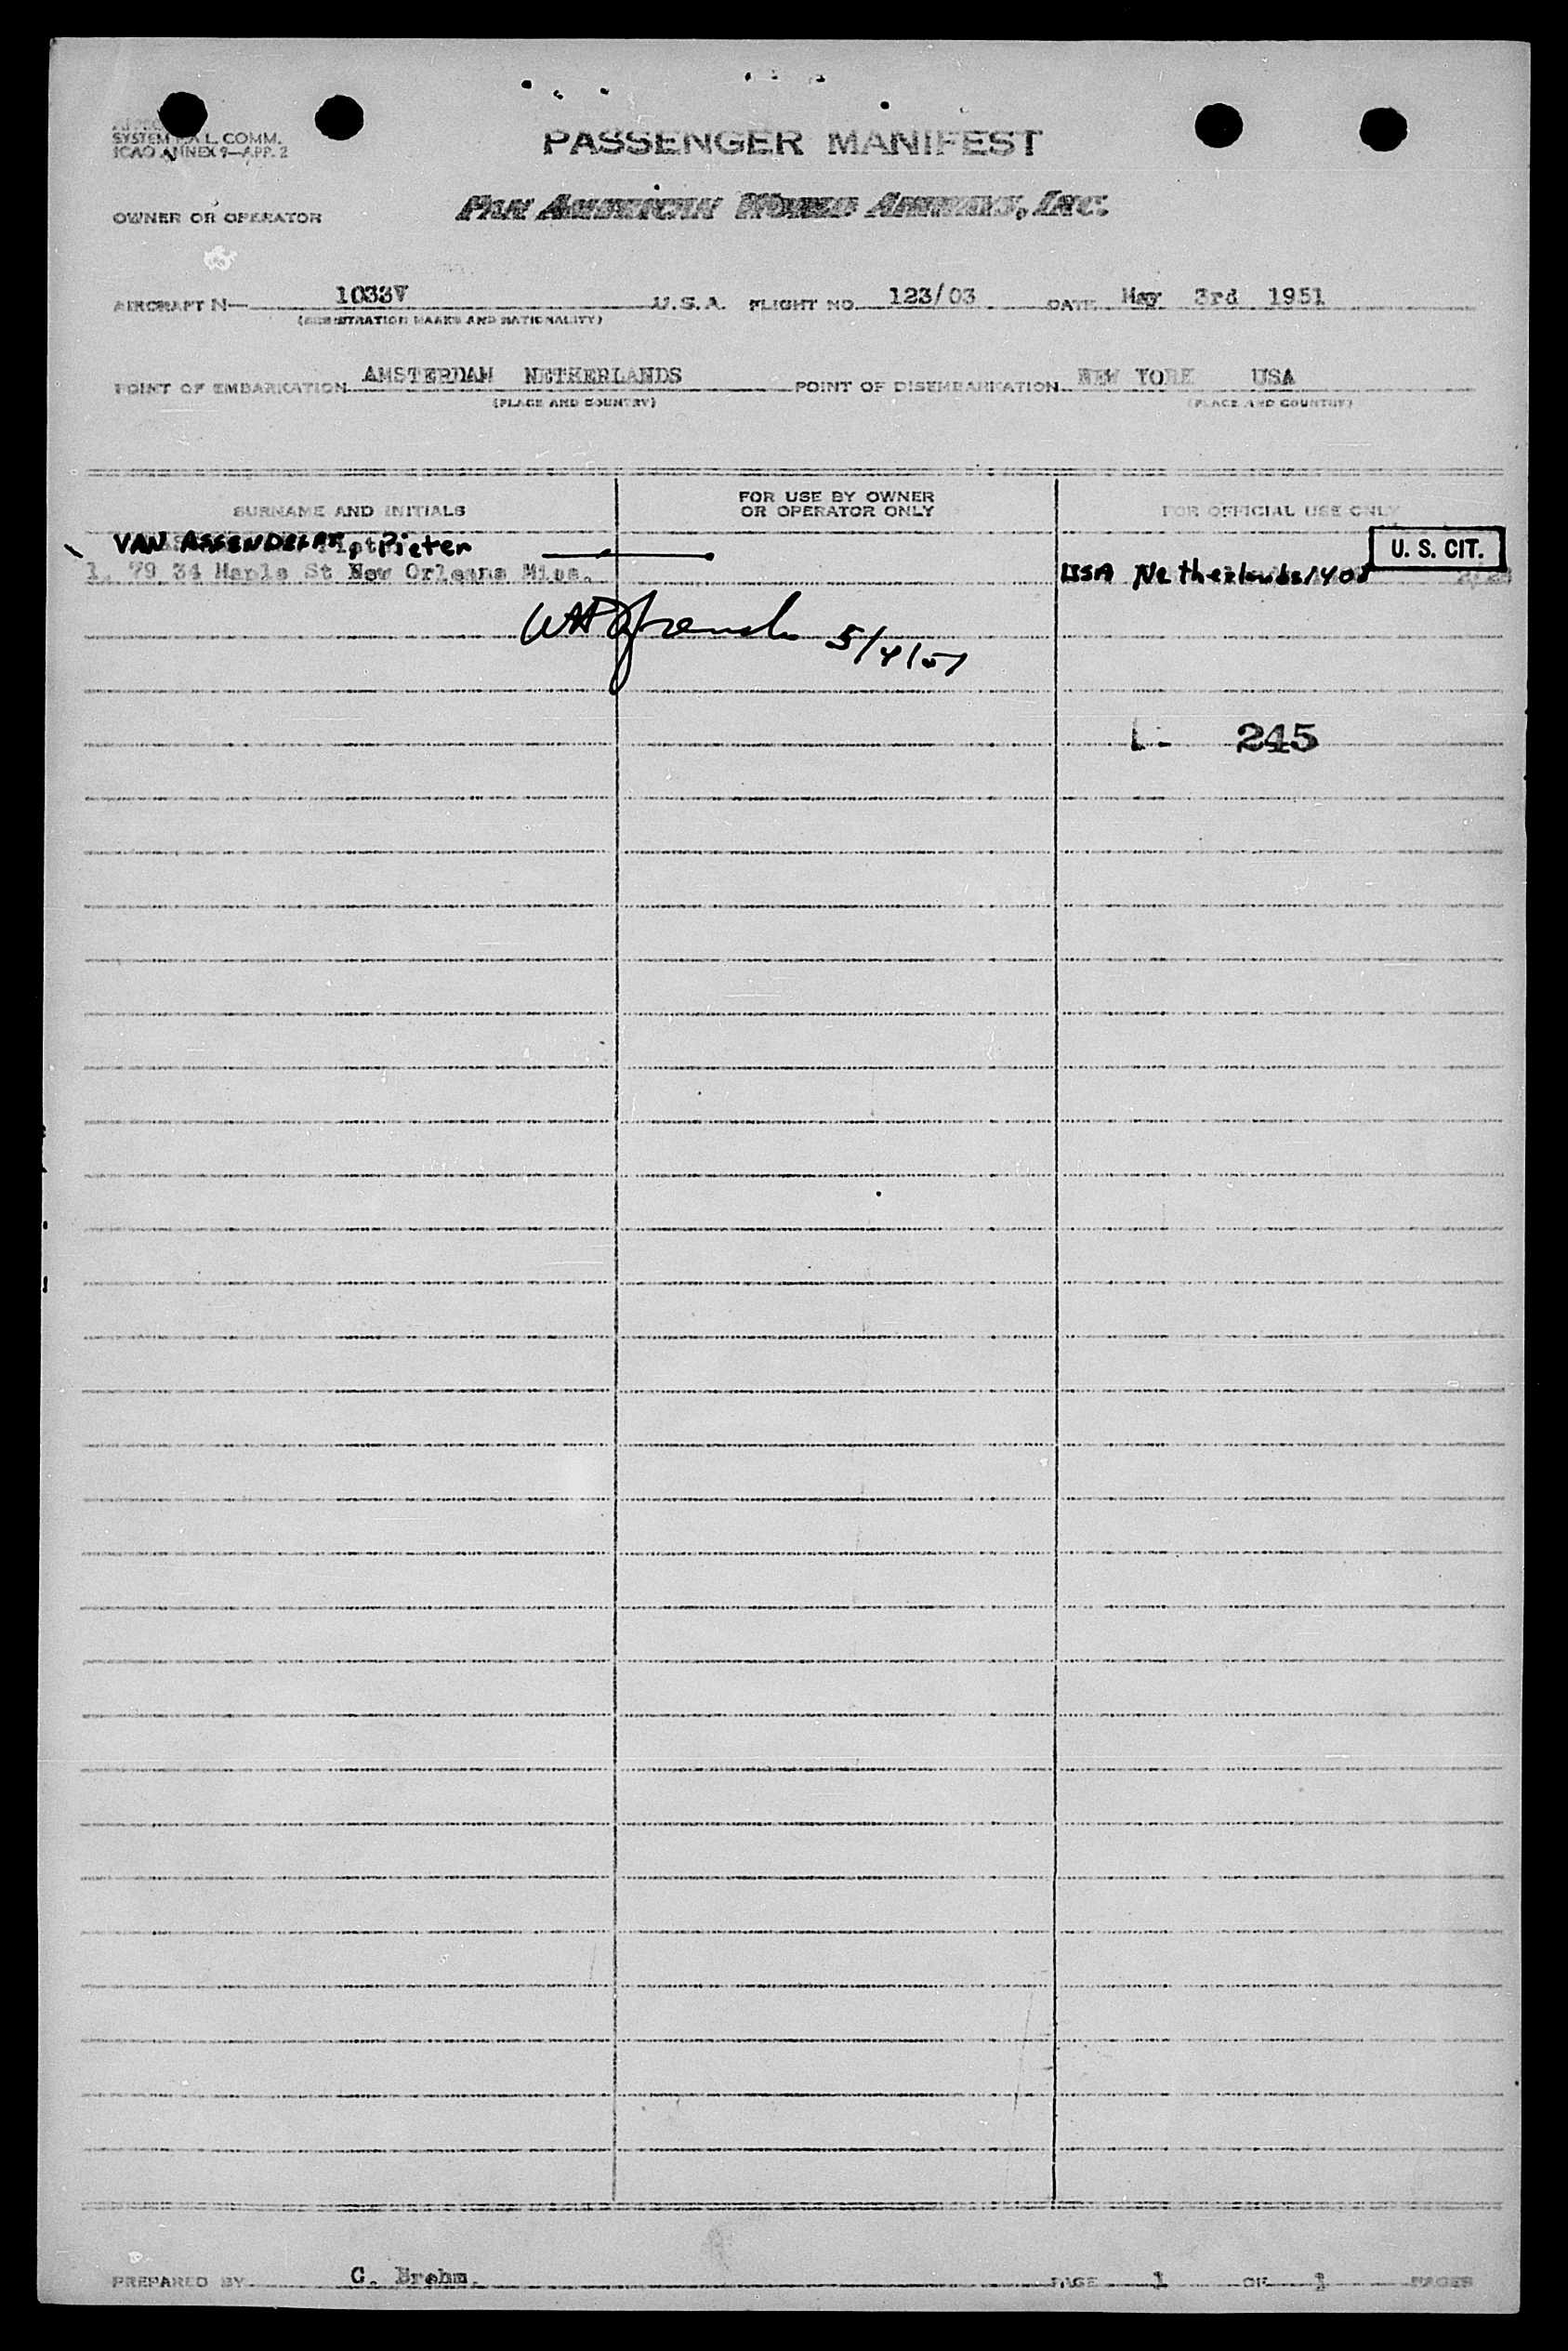 SYSTEM L. COMM.
ICAO ANNEX 9—APP. 2
PASSENGER MANIFEST
OWNER OR OPERATOR
PAN AMERICAN WORLD AIRWAYS, INC.
AIRCRAFT N— 1033V U. S. A. FLIGHT NO. 123/03 DATE May 3rd 1951
(REGISTRATION MARKS AND NATIONALITY)
POINT OF EMBARKATION AMSTERDAM NETHERLANDS POINT OF DISEMBARKATION NEW YORK USA
(PLACE AND COUNTRY) (PLACE AND COUNTRY)
SURNAME AND INITIALS
FOR USE BY OWNER
OR OPERATOR ONLY
FOR OFFICIAL USE ONLY
VAN ASSENDELFT, Pieter
U. S. CIT.
1. 79 34 Maple St New Orleans Miss. USA Netherlands
5/4/51
245
PREPARED BY C. Brehm. PAGE 1 OF 1 PAGES